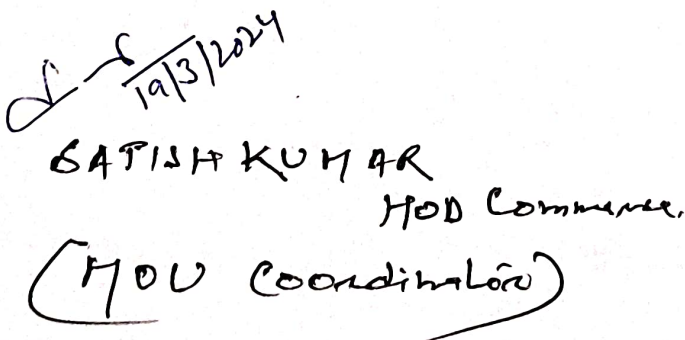 19/3/2024
SATISH KUMAR
HOD Commerce.
(MOU Coordinator)